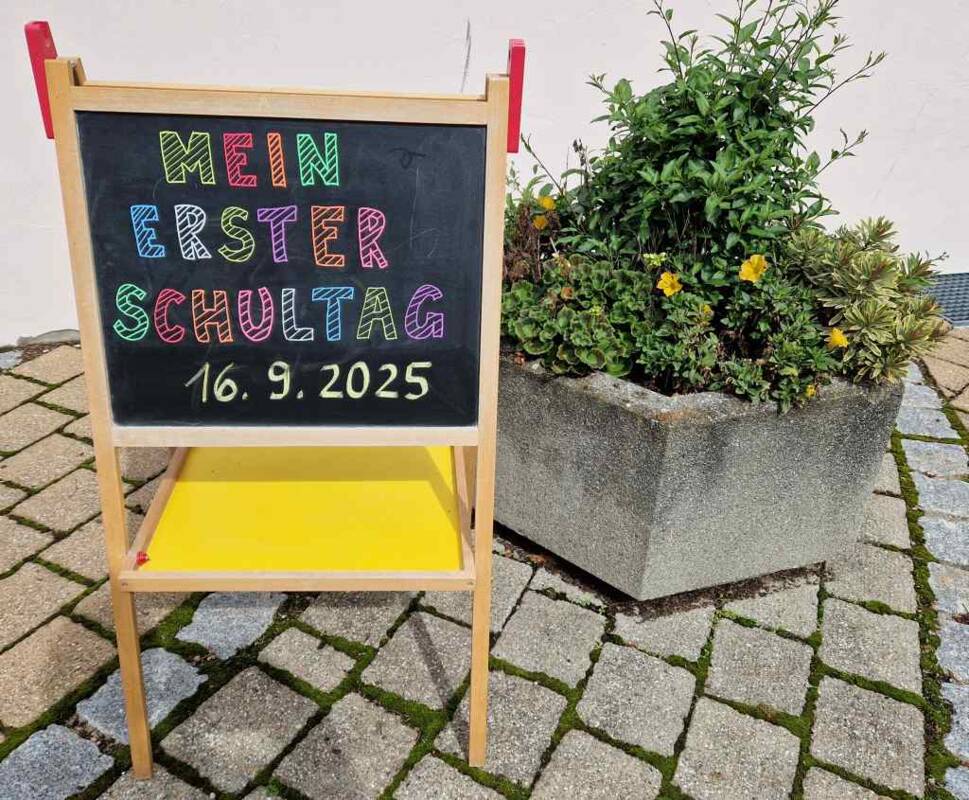 MEIN
ERSTER
SCHULTAG
16. 9. 2025